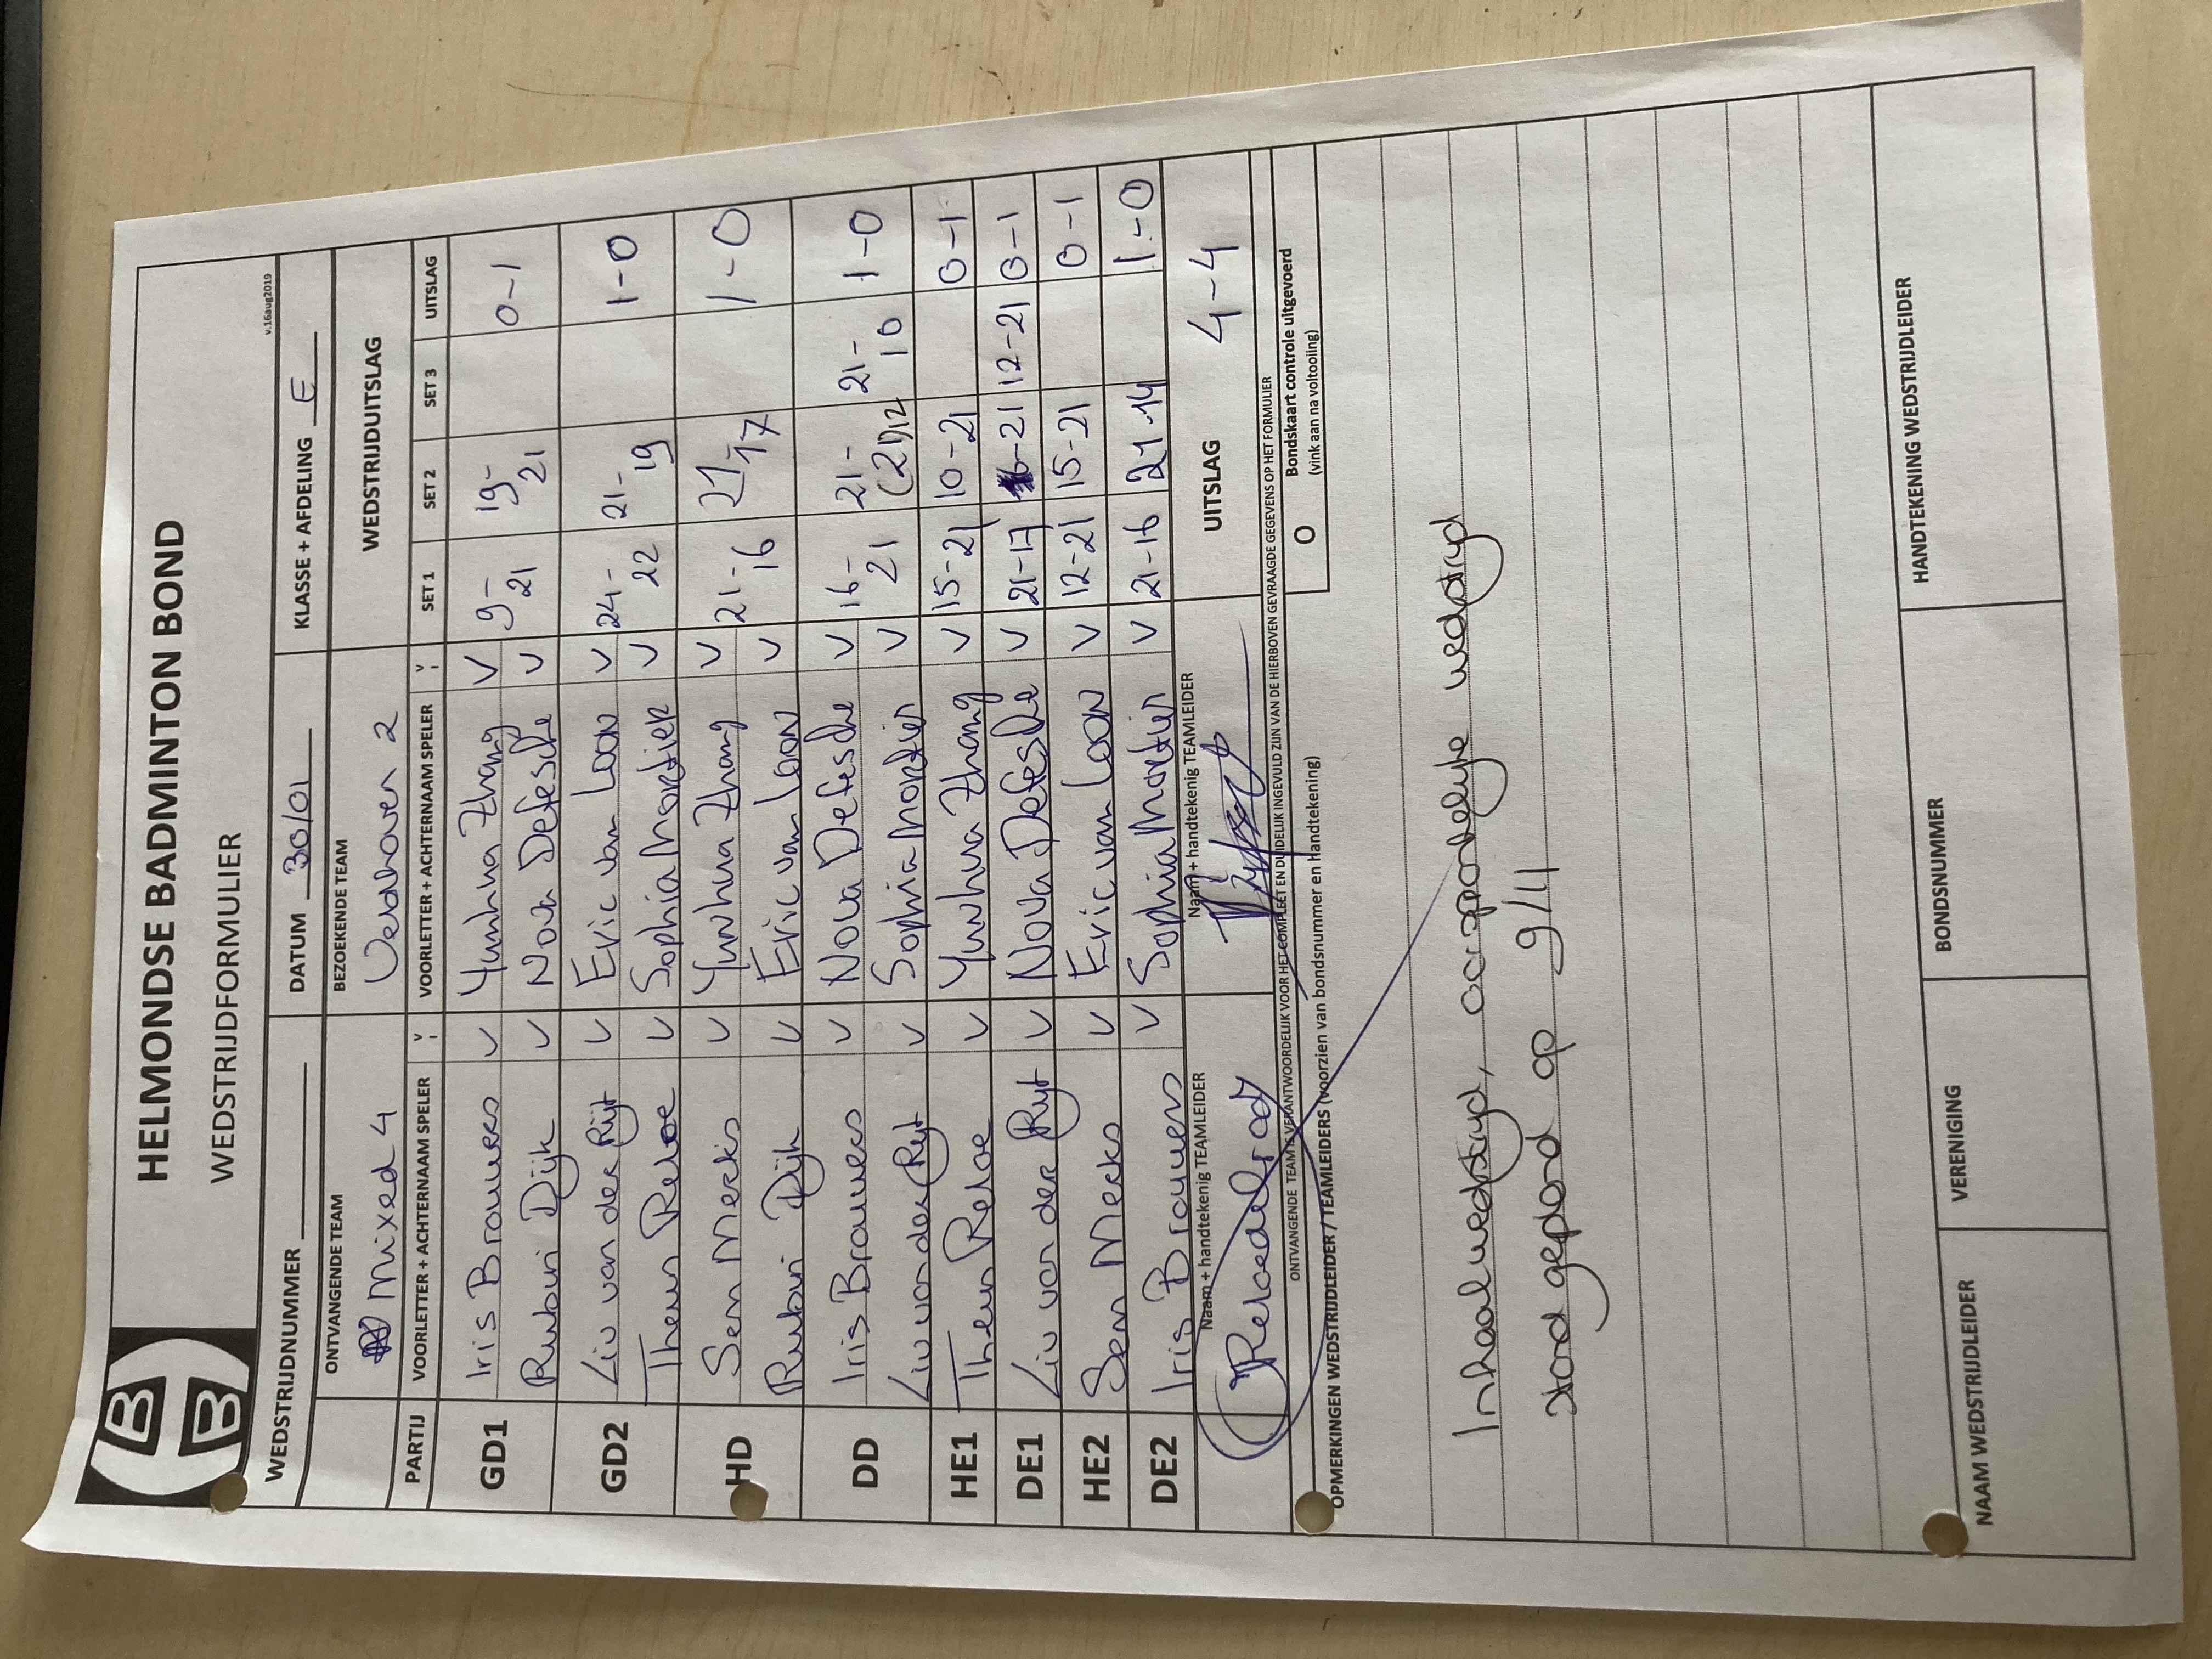 HELMONDSE BADMINTON BOND
WEDSTRIJDFORMULIER
v.16aug2019
WEDSTRIJDNUMMER DATUM 30/01 KLASSE + AFDELING E
ONTVANGENDE TEAM BEZOEKENDE TEAM WEDSTRIJDUITSLAG
Mixed 4 Veldhoven 2
PARTIJ VOORLETTER + ACHTERNAAM SPELER V VOORLETTER + ACHTERNAAM SPELER V SET 1 SET 2 SET 3 UITSLAG
GD1 Iris Brouwers V Yunhua Zhang V 9-21 19-21 0-1
Rubin Dijk V Nova Defesche V
GD2 Liv van der Rijt V Eric van Loon V 24-22 21-19 1-0
Theun Reloe V Sophia Mortier V
HD Sem Merks V Yunhua Zhang V 21-16 21-17 1-0
Rubin Dijk V Eric van Loon V
DD Iris Brouwers V Nova Defesche V 16-21 21-(21)12 21-10 1-0
Liv van der Rijt V Sophia Mortier V
HE1 Theun Reloe V Yunhua Zhang V 15-21 10-21 0-1
DE1 Liv van der Rijt V Nova Defesche V 21-17 -21 12-21 0-1
HE2 Sem Merks V Eric van Loon V 12-21 15-21 0-1
DE2 Iris Brouwers V Sophia Mortier V 21-16 21-14 1-0
Naam + handtekenig TEAMLEIDER Naam + handtekenig TEAMLEIDER UITSLAG 4-4
ONTVANGENDE TEAM IS VERANTWOORDELIJK VOOR HET COMPLEET EN DUIDELIJK INGEVULD ZIJN VAN DE HIERBOVEN GEVRAAGDE GEGEVENS OP HET FORMULIER
O Bondskaart controle uitgevoerd
(vink aan na voltooiing)
OPMERKINGEN WEDSTRIJDLEIDER / TEAMLEIDERS (voorzien van bondsnummer en handtekening)
Inhaalwedstrijd, oorspronkelijke wedstrijd
stond gepland op 9/11
NAAM WEDSTRIJDLEIDER VERENIGING BONDSNUMMER HANDTEKENING WEDSTRIJDLEIDER